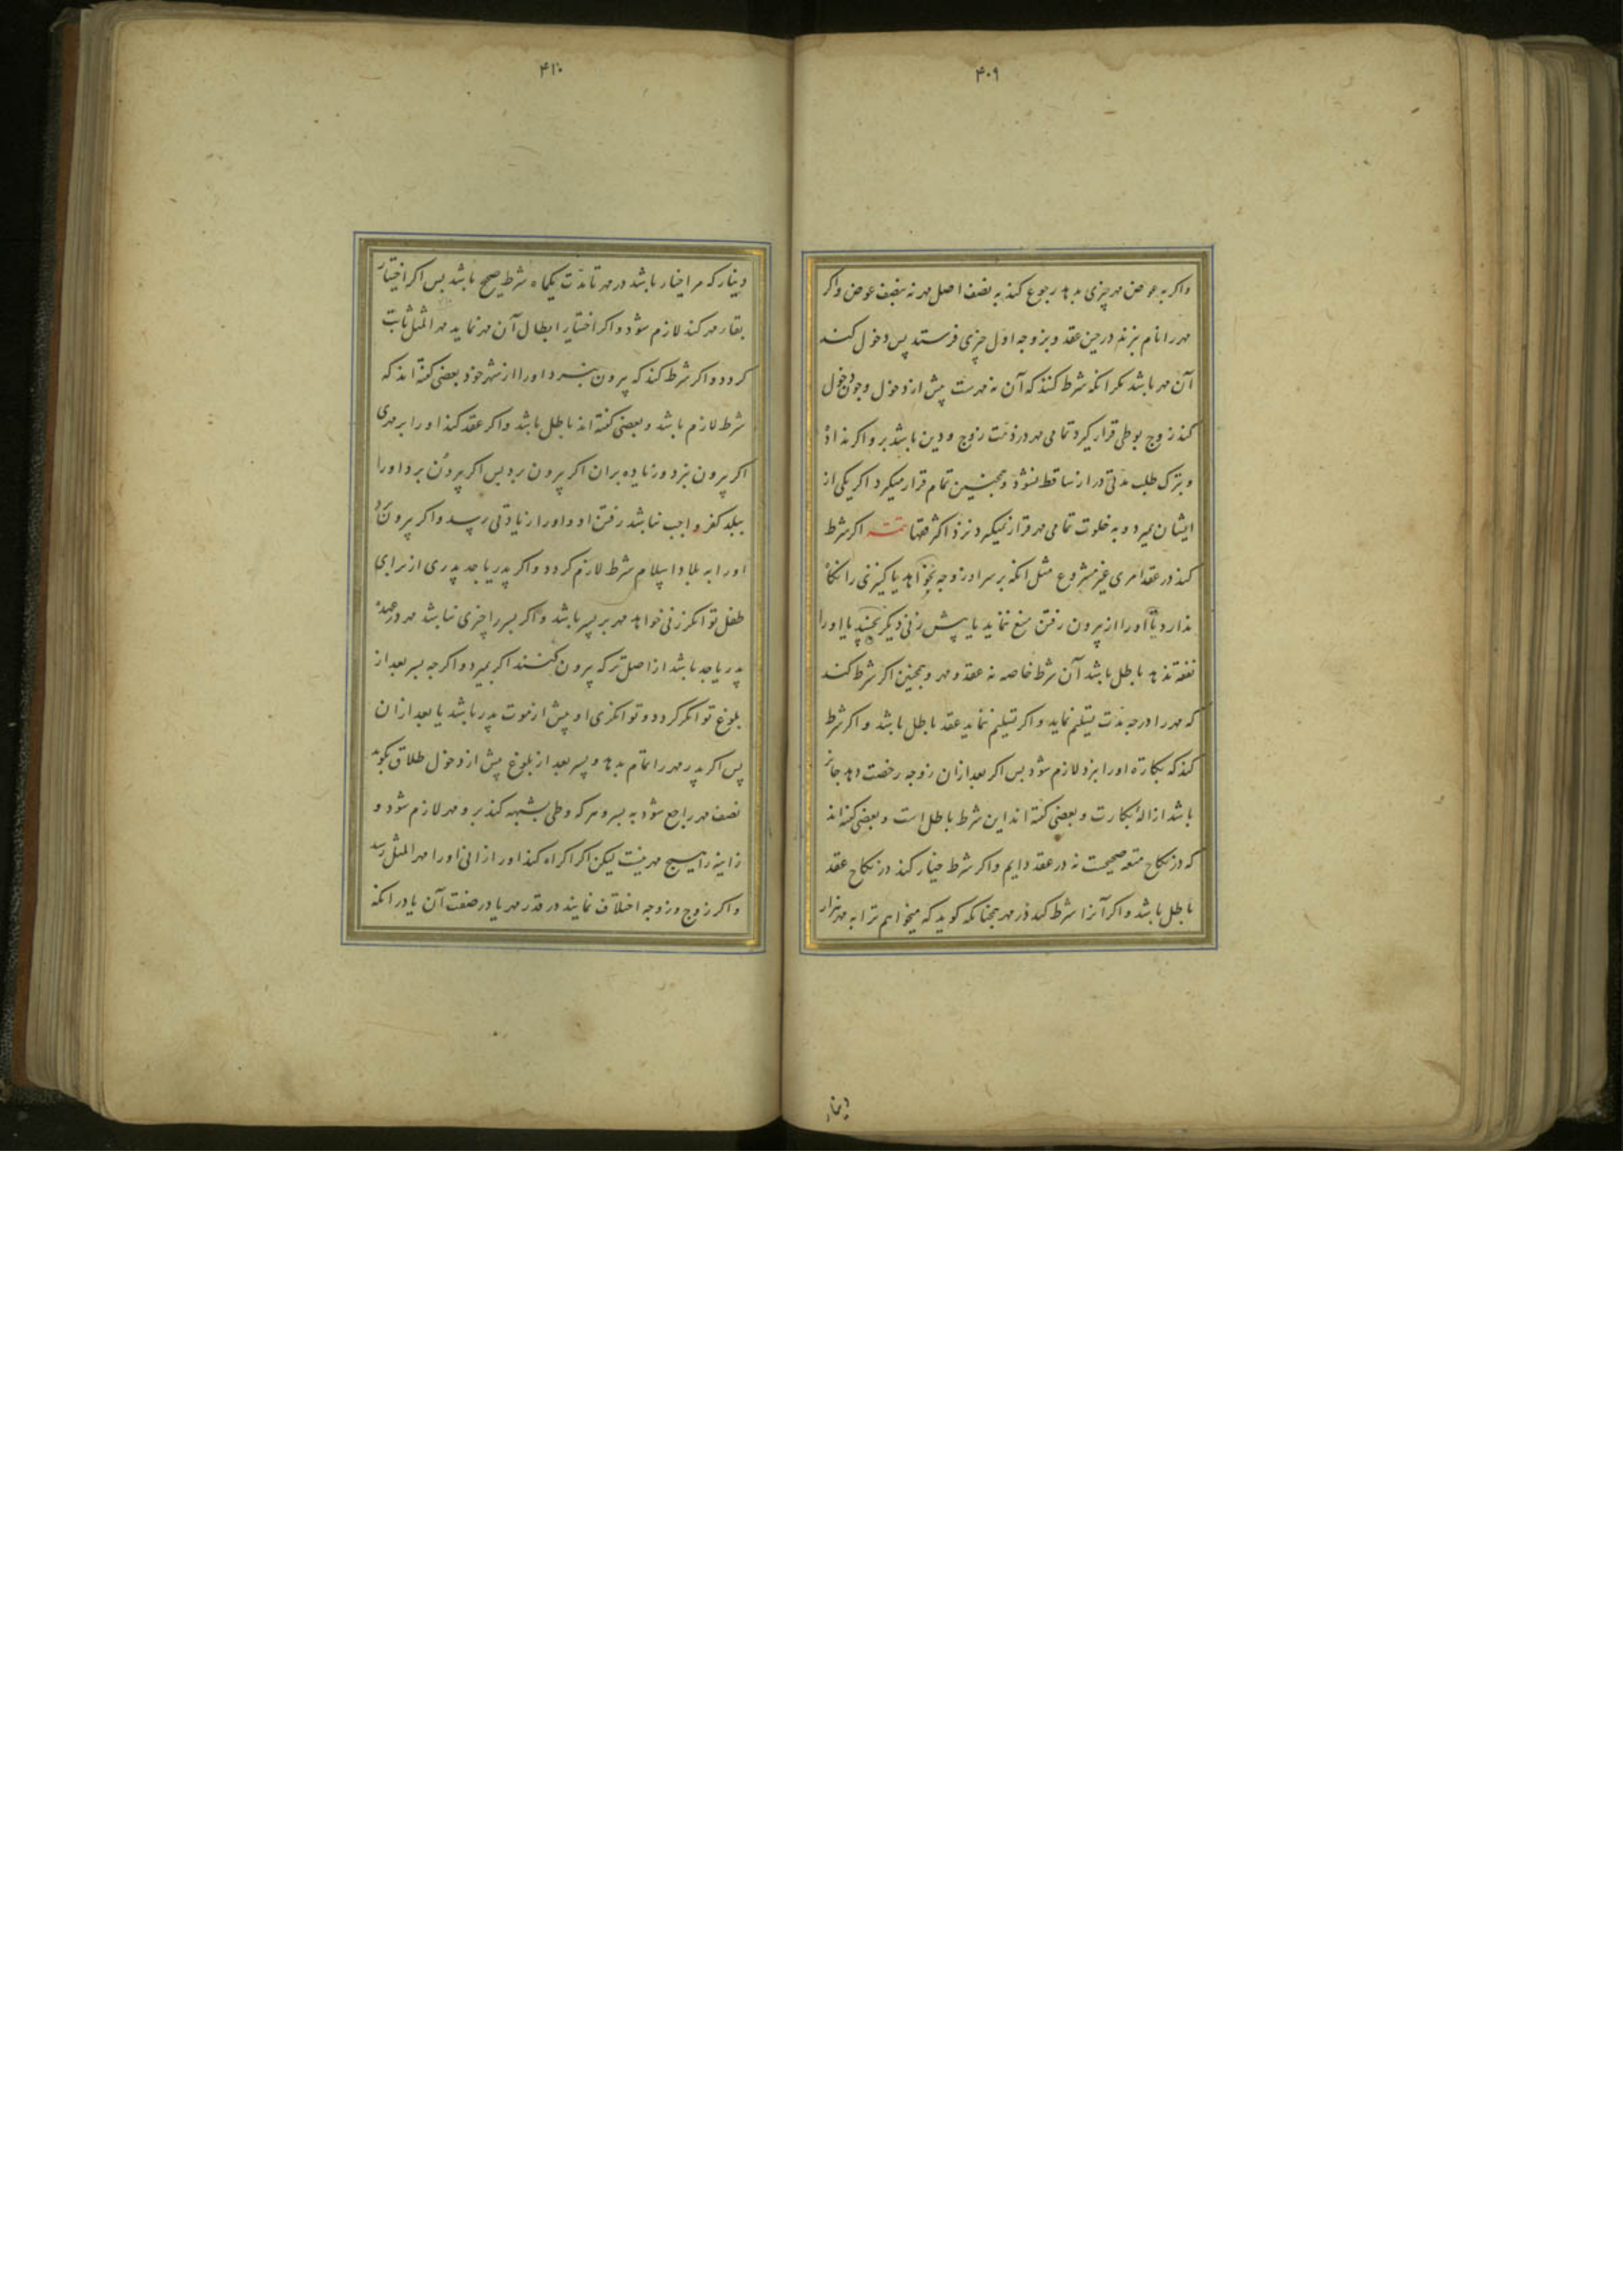 ۴۰۹
واکر به عوض مهر چیزی بدهد رجوع کند به نصف اصل مهر نه بنصف عوض واکر
مهر را نام نبرند در حین عقد و بزوجه اول چیزی فرستد پس دخول کند
آن مهر باشد مکر انکه شرط کنند که آن نه مهرست پیش از دخول و چون دخول
کند زوج بوطی قرار کیرد تمامی مهر در ذمت زوج و دین باشد برو اکر نداد
و بترک طلب مدتی دراز ساقط نشود و همچنین تمام قرار میکیرد اکر یکی از
ایشان بمیرد و به خلوت تمامی مهر قرار نمیکیرد نزد اکثر فقها تتمه اکر شرط
کند در عقد امری غیر مشروع مثل انکه بر سر او زوجه نخواهد یا کنیزنی را نکاه
ندارد یا او را از بیرون رفتن منع ننماید یا پیش زنی دیکر نخسپد یا او را
نفقه ندهد باطل باشد آن شرط خاصه نه عقد و مهر و همچنین اکر شرط کند
که مهر را در چه مدت تسلیم نماید و اکر تسلیم ننماید عقد باطل باشد و اکر شرط
کند که بکارة او را نبرد لازم شود پس اکر بعد ازان زوجه رخصت دهد جایز
باشد ازالهٔ بکارت و بعضی کفته اند این شرط باطل است و بعضی کفته اند
که در نکاح متعه صحیحست نه در عقد دایم واکر شرط خیار کند در نکاح عقد
باطل باشد و اکر آنرا شرط کند در مهر همچنانکه کوید که میخواهم ترا به مهر هزار
دینار
۴۱۰
دینار که مرا خیار باشد در مهر تا مدت یکماه شرط صحیح باشد پس اکر اختیار
بقاء مهر کند لازم شود و اکر اختیار ابطال آن مهر نماید مهر المثل ثابت
کردد و اکر شرط کند که بیرون نبرد او را از شهر خود بعضی کفته اند که
شرط لازم باشد و بعضی کفته اند باطل باشد و اکر عقد کند او را بر مهری
اکر بیرون نبرد و زیاده بران اکر بیرون برد پس اکر بیرون برد او را
ببلد کفر واجب نباشد رفتن او و او را زیادتی رسد و اکر بیرون برد
او را به بلاد اسلام شرط لازم کردد و اکر پدر یا جد پدری از برای
طفل توانکر زنی خواهد مهر بر پسر باشد و اکر پسر را چیزی نباشد مهر در عهدهٔ
پدر یا جد باشد از اصل ترکه بیرون کنند اکر بمیرد و اکر چه پسر بعد از
بلوغ توانکر کردد و توانکری او پیش از موت پدر باشد یا بعد ازان
پس اکر پدر مهر را تمام بدهد و پسر بعد از بلوغ پیش از دخول طلاق بکوید
نصف مهر راجع شود به پسر و هر که وطی بشبهه کند برو مهر لازم شود و
زانیه را هیچ مهر نیست لیکن اکر اکراه کند او را زانی او را مهر المثل رسد
واکر زوج و زوجه اختلاف نمایند در قدر مهر یا در صفت آن یا در انکه